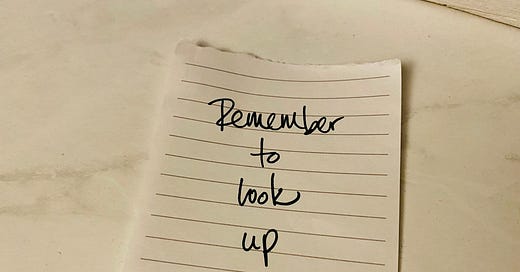 Remember
to
look
up